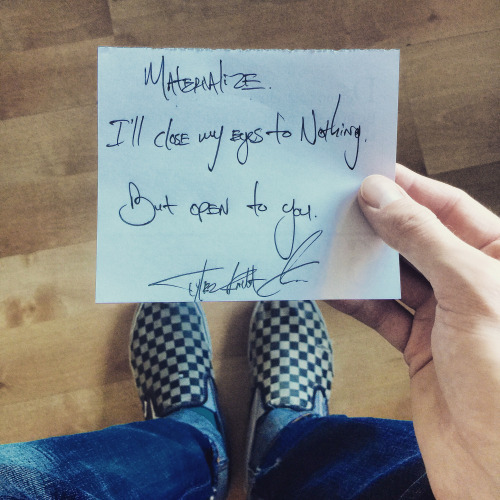 Maternalize.
I'll close my eyes to Nothing.
But open to you.
Tyler Knott G